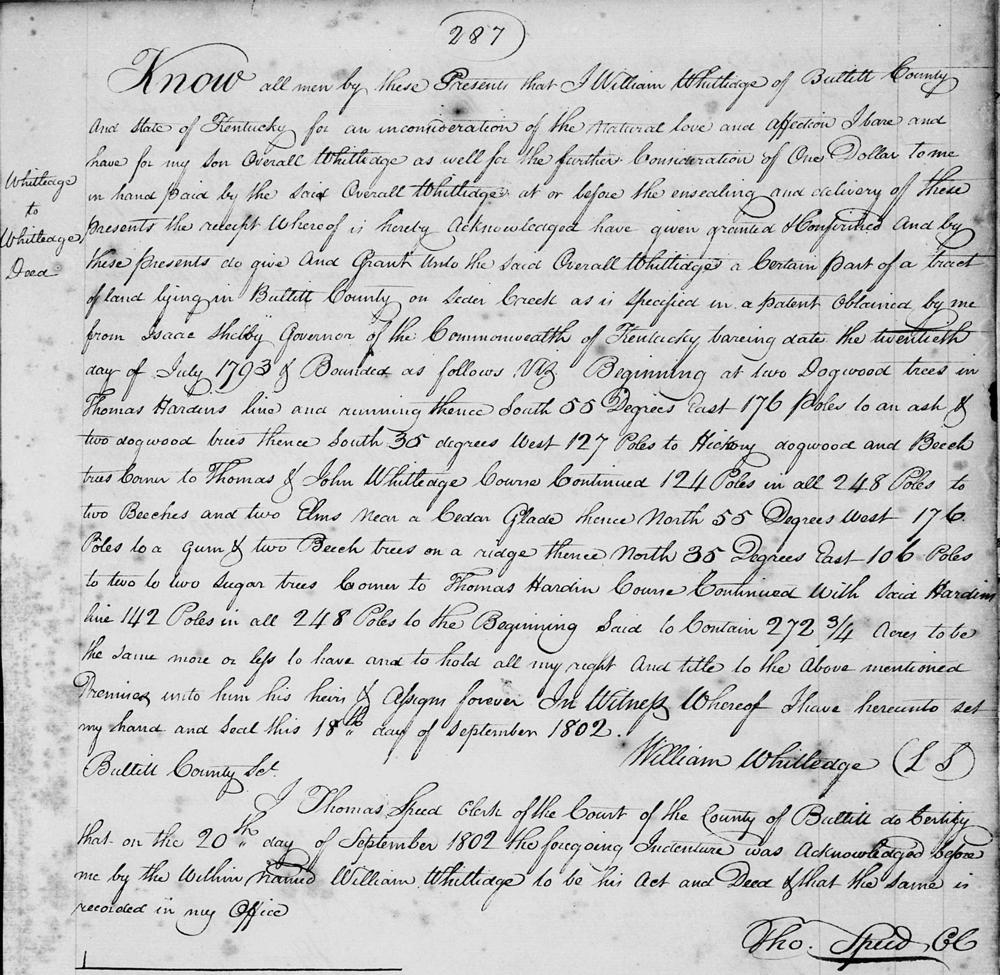 287
Know all men by these Presents that I William Whitledge of Bullitt County
And state of Kentucky for an inconsideration of the Natural love and affection I bare and
have for my son Overall Whitledge as well for the further Consideration of One Dollar to me
Whitledge
to
Whitledge
Deed
in hand paid by the said Overall Whitledge at or before the ensealing and delivery of these
presents the receipt Whereof is hereby Acknowledged have given granted & Confirmed And by
these presents do give And Grant Unto the said Overall Whitledge a Certain part of a tract
of land lying in Bullitt County on Seder Creek as is specified in a patent Obtained by me
from Isaac Shelby Governor of the Commonwealth of Kentucky bareing date the twentieth
day of July 1793 & Bounded as follows Viz Beginning at two Dogwood trees in
Thomas Hardins line and running thence South 55 Degrees East 176 Poles to an ash &
two dogwood trees thence South 35 degrees West 127 Poles to Hickory dogwood and Beech
trees Corner to Thomas & John Whitledge Course Continued 124 Poles in all 248 Poles to
two Beeches and two Elms Near a Cedar Glade thence North 55 Degrees West 176
Poles to a Gum & two Beech trees on a ridge thence North 35 Degrees East 106 Poles
to two to two sugar trees Corner to Thomas Hardin Course Continued With said Hardins
line 142 Poles in all 248 Poles to the Beginning Said to Contain 272 3/4 Acres to be
the same more or less to have and to hold all my right And title to the Above mentioned
Premises unto him his heirs & Assigns forever In Witness Whereof I have hereunto set
my hand and seal this 18th day of September 1802.
William Whitledge (L S)
Bullitt County Sct.
I Thomas Speed Clerk of the Court of the County of Bullitt do Certify
that on the 20th day of September 1802 the foregoing Indenture was Acknowledged before
me by the Within named William Whitledge to be his Act and Deed & that the same is
recorded in my Office
Tho. Speed CC